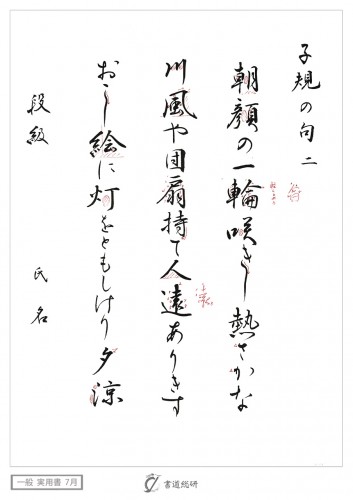 子規の句 二
朝顔の一輪咲きし熱さかな
川風や団扇持て人遠ありきす
おこし絵に灯をともしけり夕涼
段級 氏名
一般 実用書 7月
書道総研